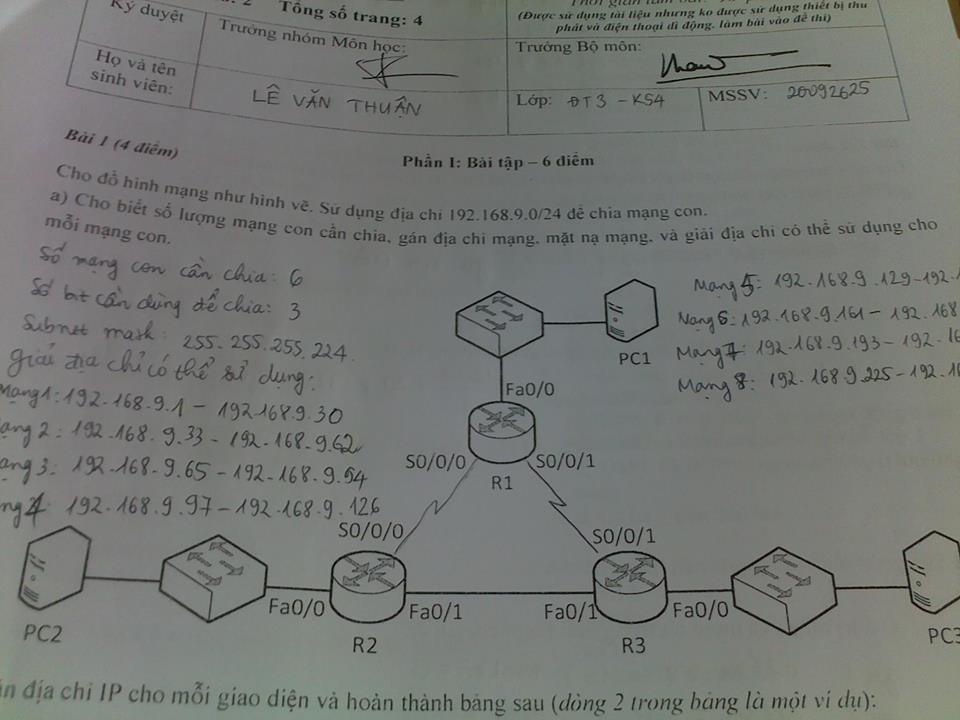 2 Tổng số trang: 4
(Được sử dụng tài liệu nhưng ko được sử dụng thiết bị thu
phát và điện thoại di động, làm bài vào đề thi)
Ký duyệt
Trưởng nhóm Môn học:
Trưởng Bộ môn:
Họ và tên
sinh viên:
LÊ VĂN THUẬN
Lớp: ĐT3 - K54
MSSV: 20092625
Phần I: Bài tập – 6 điểm
Bài 1 (4 điểm)
Cho đồ hình mạng như hình vẽ. Sử dụng địa chỉ 192.168.9.0/24 để chia mạng con.
a) Cho biết số lượng mạng con cần chia, gán địa chỉ mạng, mặt nạ mạng, và giải địa chỉ có thể sử dụng cho
mỗi mạng con.
Số mạng con cần chia: 6
Số bit cần dùng để chia: 3
Subnet mask: 255.255.255.224.
giải địa chỉ có thể sử dụng:
Mạng 1: 192.168.9.1 – 192.168.9.30
ạng 2: 192.168.9.33 - 192.168.9.62
ạng 3: 192.168.9.65 - 192.168.9.94
ng 4: 192.168.9.97 - 192.168.9.126
Mạng 5: 192.168.9.129 - 192.1
Mạng 6: 192.168.9.161 - 192.168
Mạng 7: 192.168.9.193 - 192.16
Mạng 8: 192.168.9.225 - 192.16
PC1
Fa0/0
S0/0/0
S0/0/1
R1
S0/0/0
S0/0/1
Fa0/0
Fa0/1
Fa0/1
Fa0/0
PC2
R2
R3
PC3
n địa chỉ IP cho mỗi giao diện và hoàn thành bảng sau (dòng 2 trong bảng là một ví dụ):